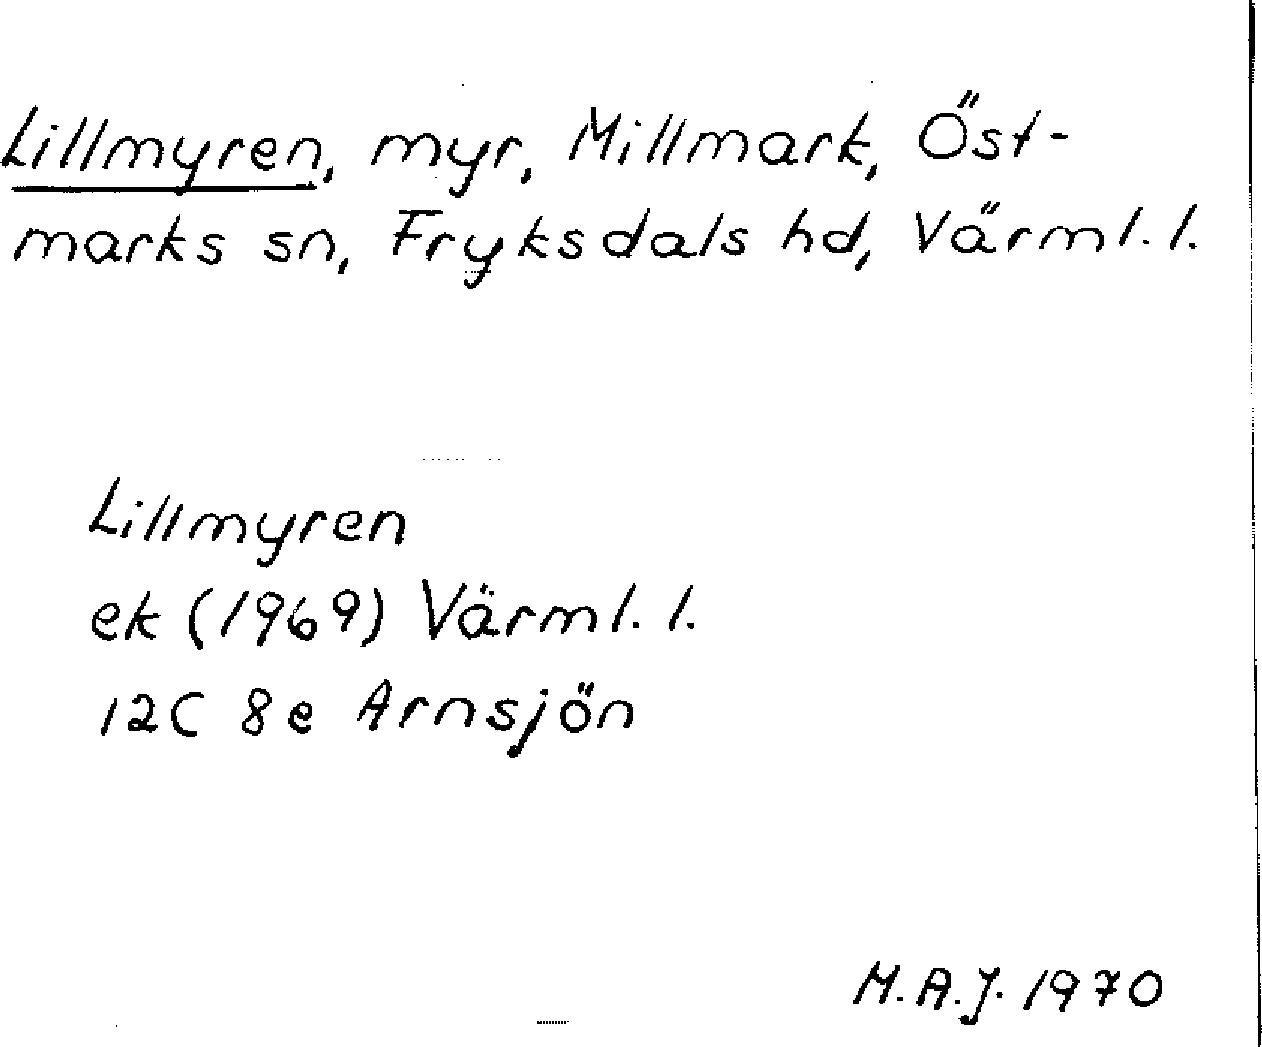 Lillmyren, myr, Millmark, Öst-
marks sn, Fryksdals hd, Värml. l.
Lillmyren
ek (1969) Värml. l.
12C 8e Arnsjön
M.A.J. 1970